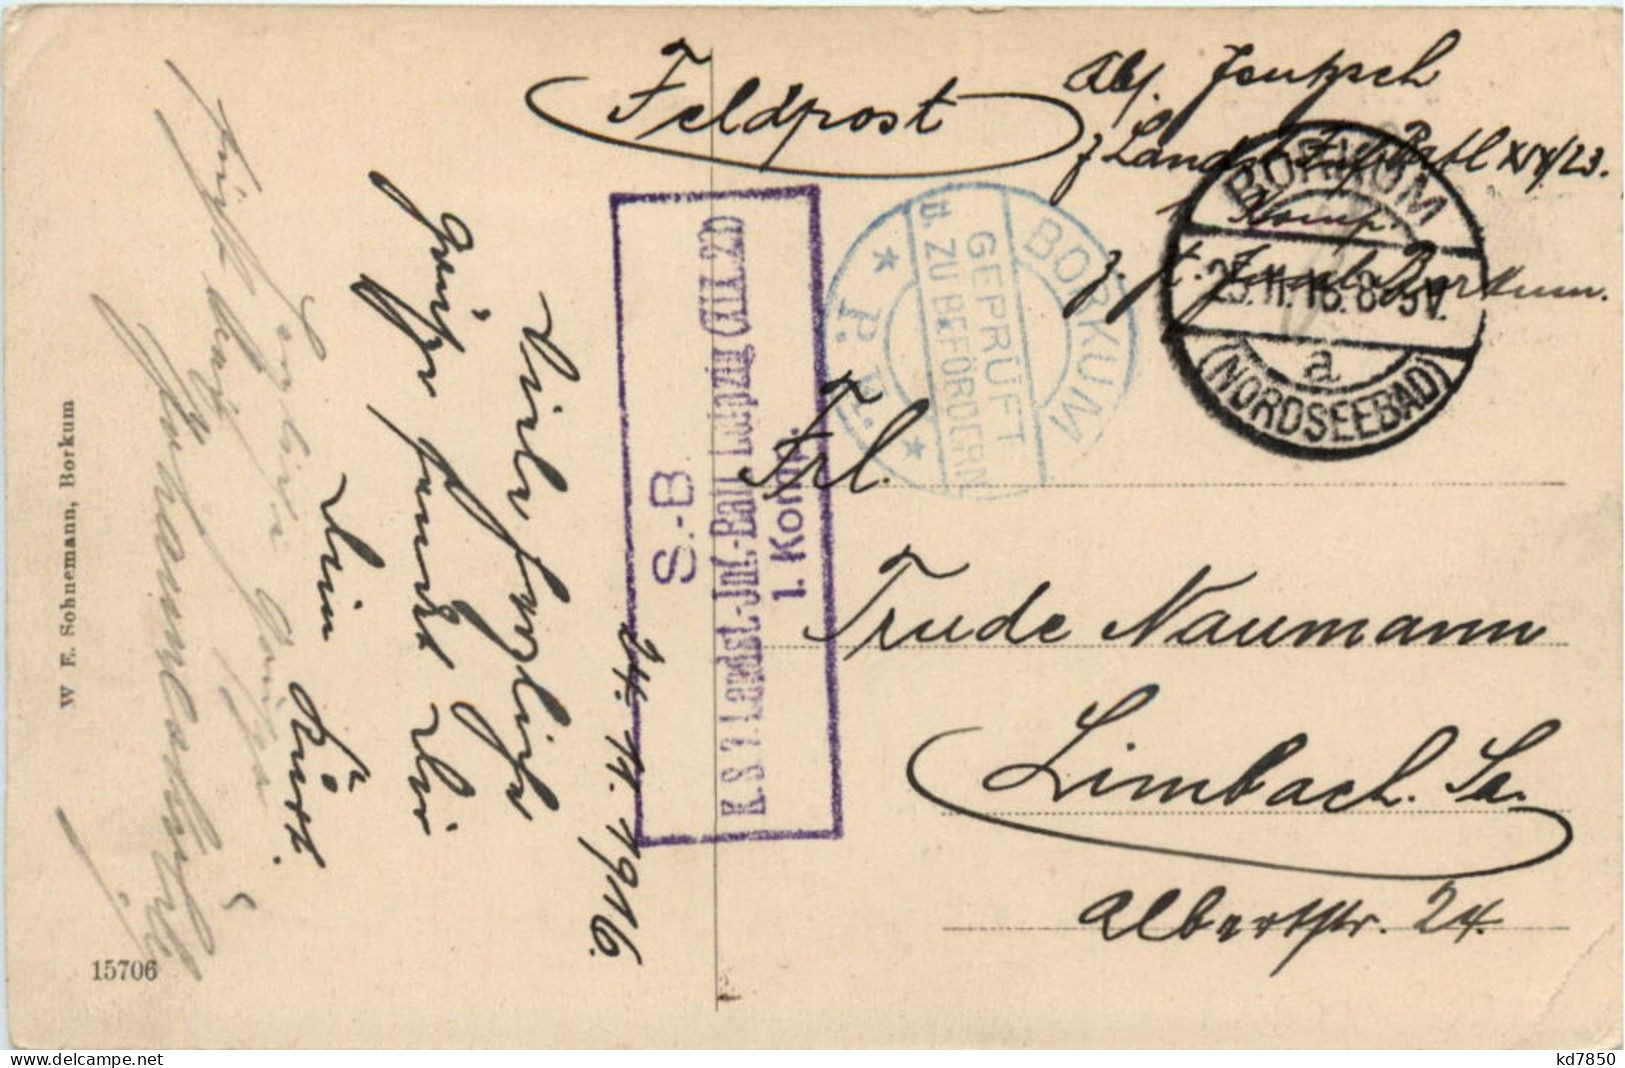 Feldpost
Abs. Jentzsch
Landst. Inf. Batl XIX/23.
1. Komp.
z. Zt. Insel Borkum.
BORKUM
25.11.16. 8-9V.
a
(NORDSEEBAD)
BORKUM
GEPRÜFT
U. ZU BEFÖRDERN
P. K.
S.-B.
K. S. 7. Landst.-Inf.-Batl. Leipzig (XIX.23)
1. Komp.
Frl.
Trude Naumann
Limbach. Sa.
Albertstr. 24.
24. 11. 1916.
Viele herzliche
Grüße sendet Dir
Dein Kurt.
W. F. Sohnemann, Borkum
15706
kd7850